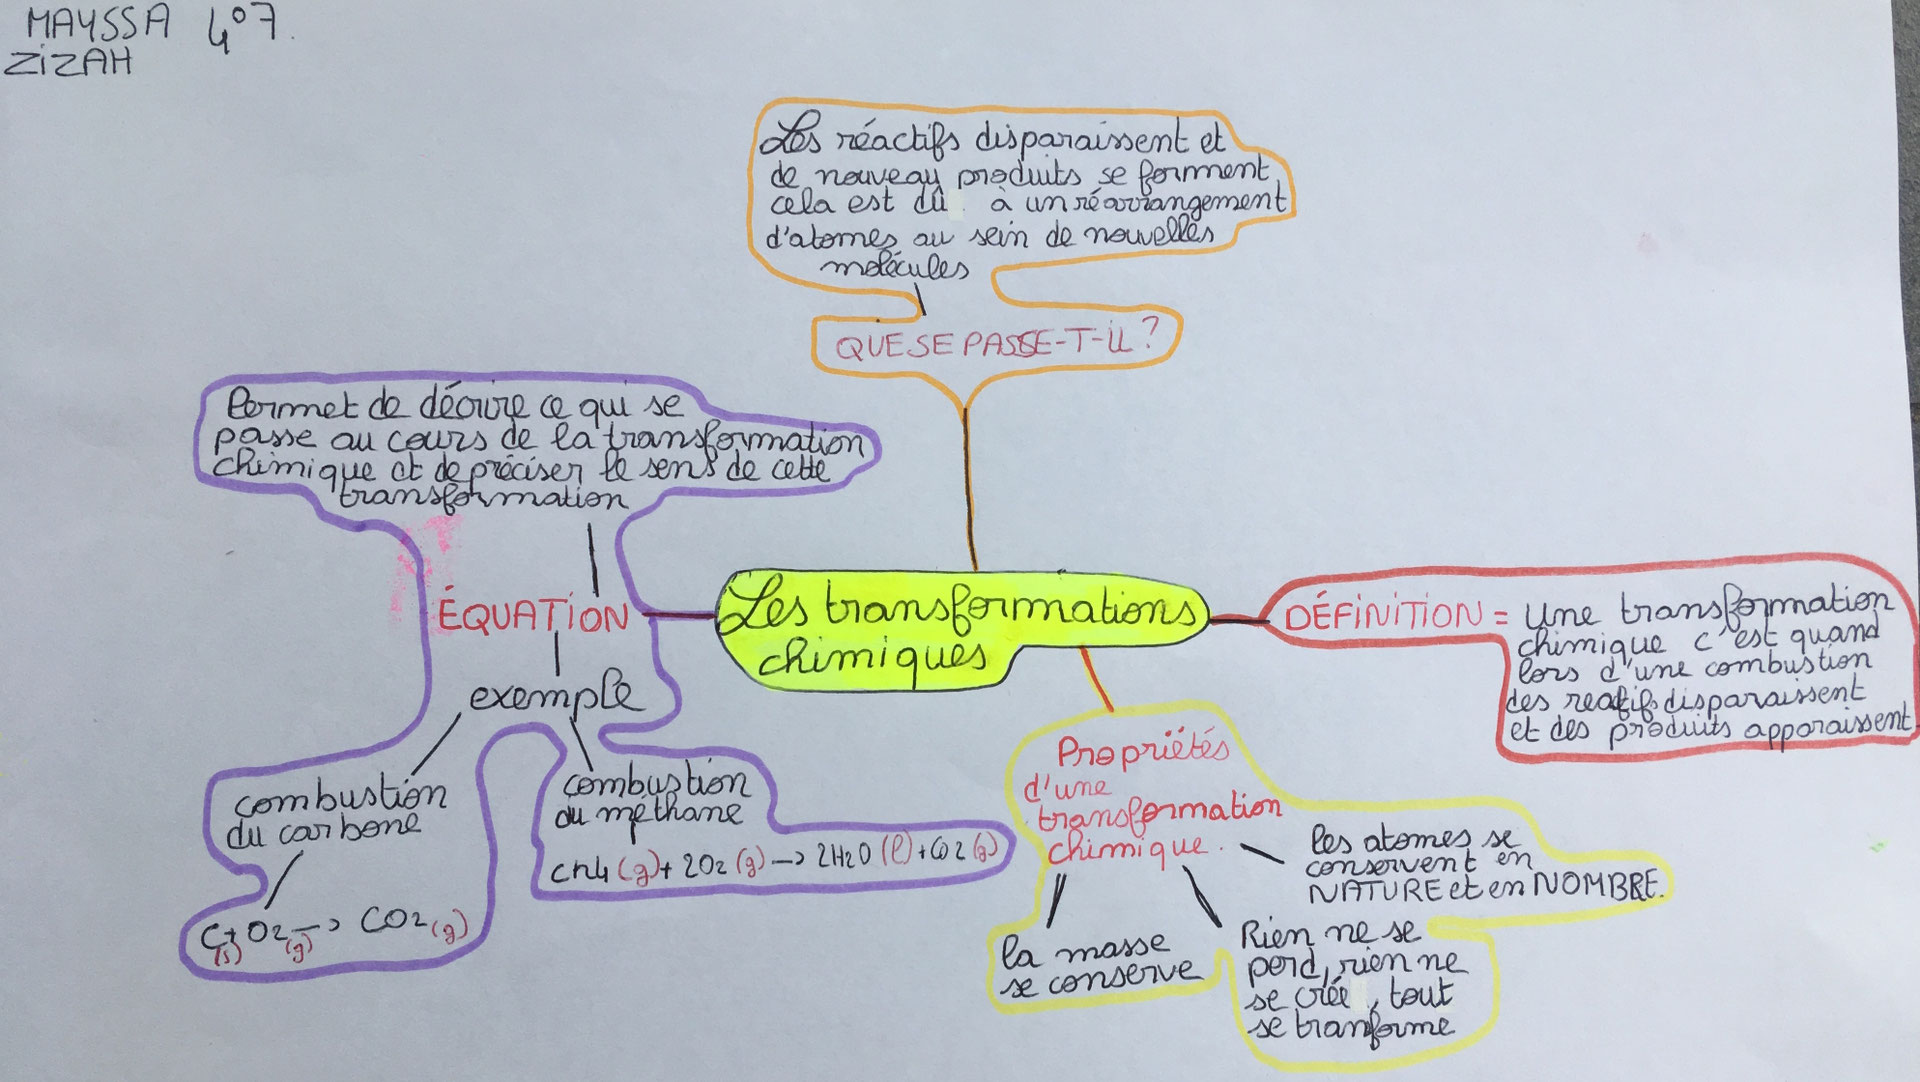 MAYSSA 4°7.
ZiZAH
Les réactifs disparaissent et
de nouveau produits se forment
cela est dû à un réarrangement
d'atomes au sein de nouvelles
molécules
QUE SE PASSE-T-iL ?
Permet de décrire ce qui se
passe au cours de la transformation
chimique et de préciser le sens de cette
transformation
ÉQUATiON
exemple
combustion
du carbone
C(s)+O2(g)-> CO2(g)
combustion
du méthane
CH4(g)+2O2(g)->2H2O(l)+CO2(g)
Les transformations
chimiques
DÉFiNiTiON = Une transformation
chimique c'est quand
lors d'une combustion
des reactifs disparaissent
et des produits apparaissent
Propriétés
d'une
transformation
chimique.
les atomes se
conservent en
NATURE et en NOMBRE.
la masse
se conserve
Rien ne se
perd, rien ne
se crée, tout
se tranforme